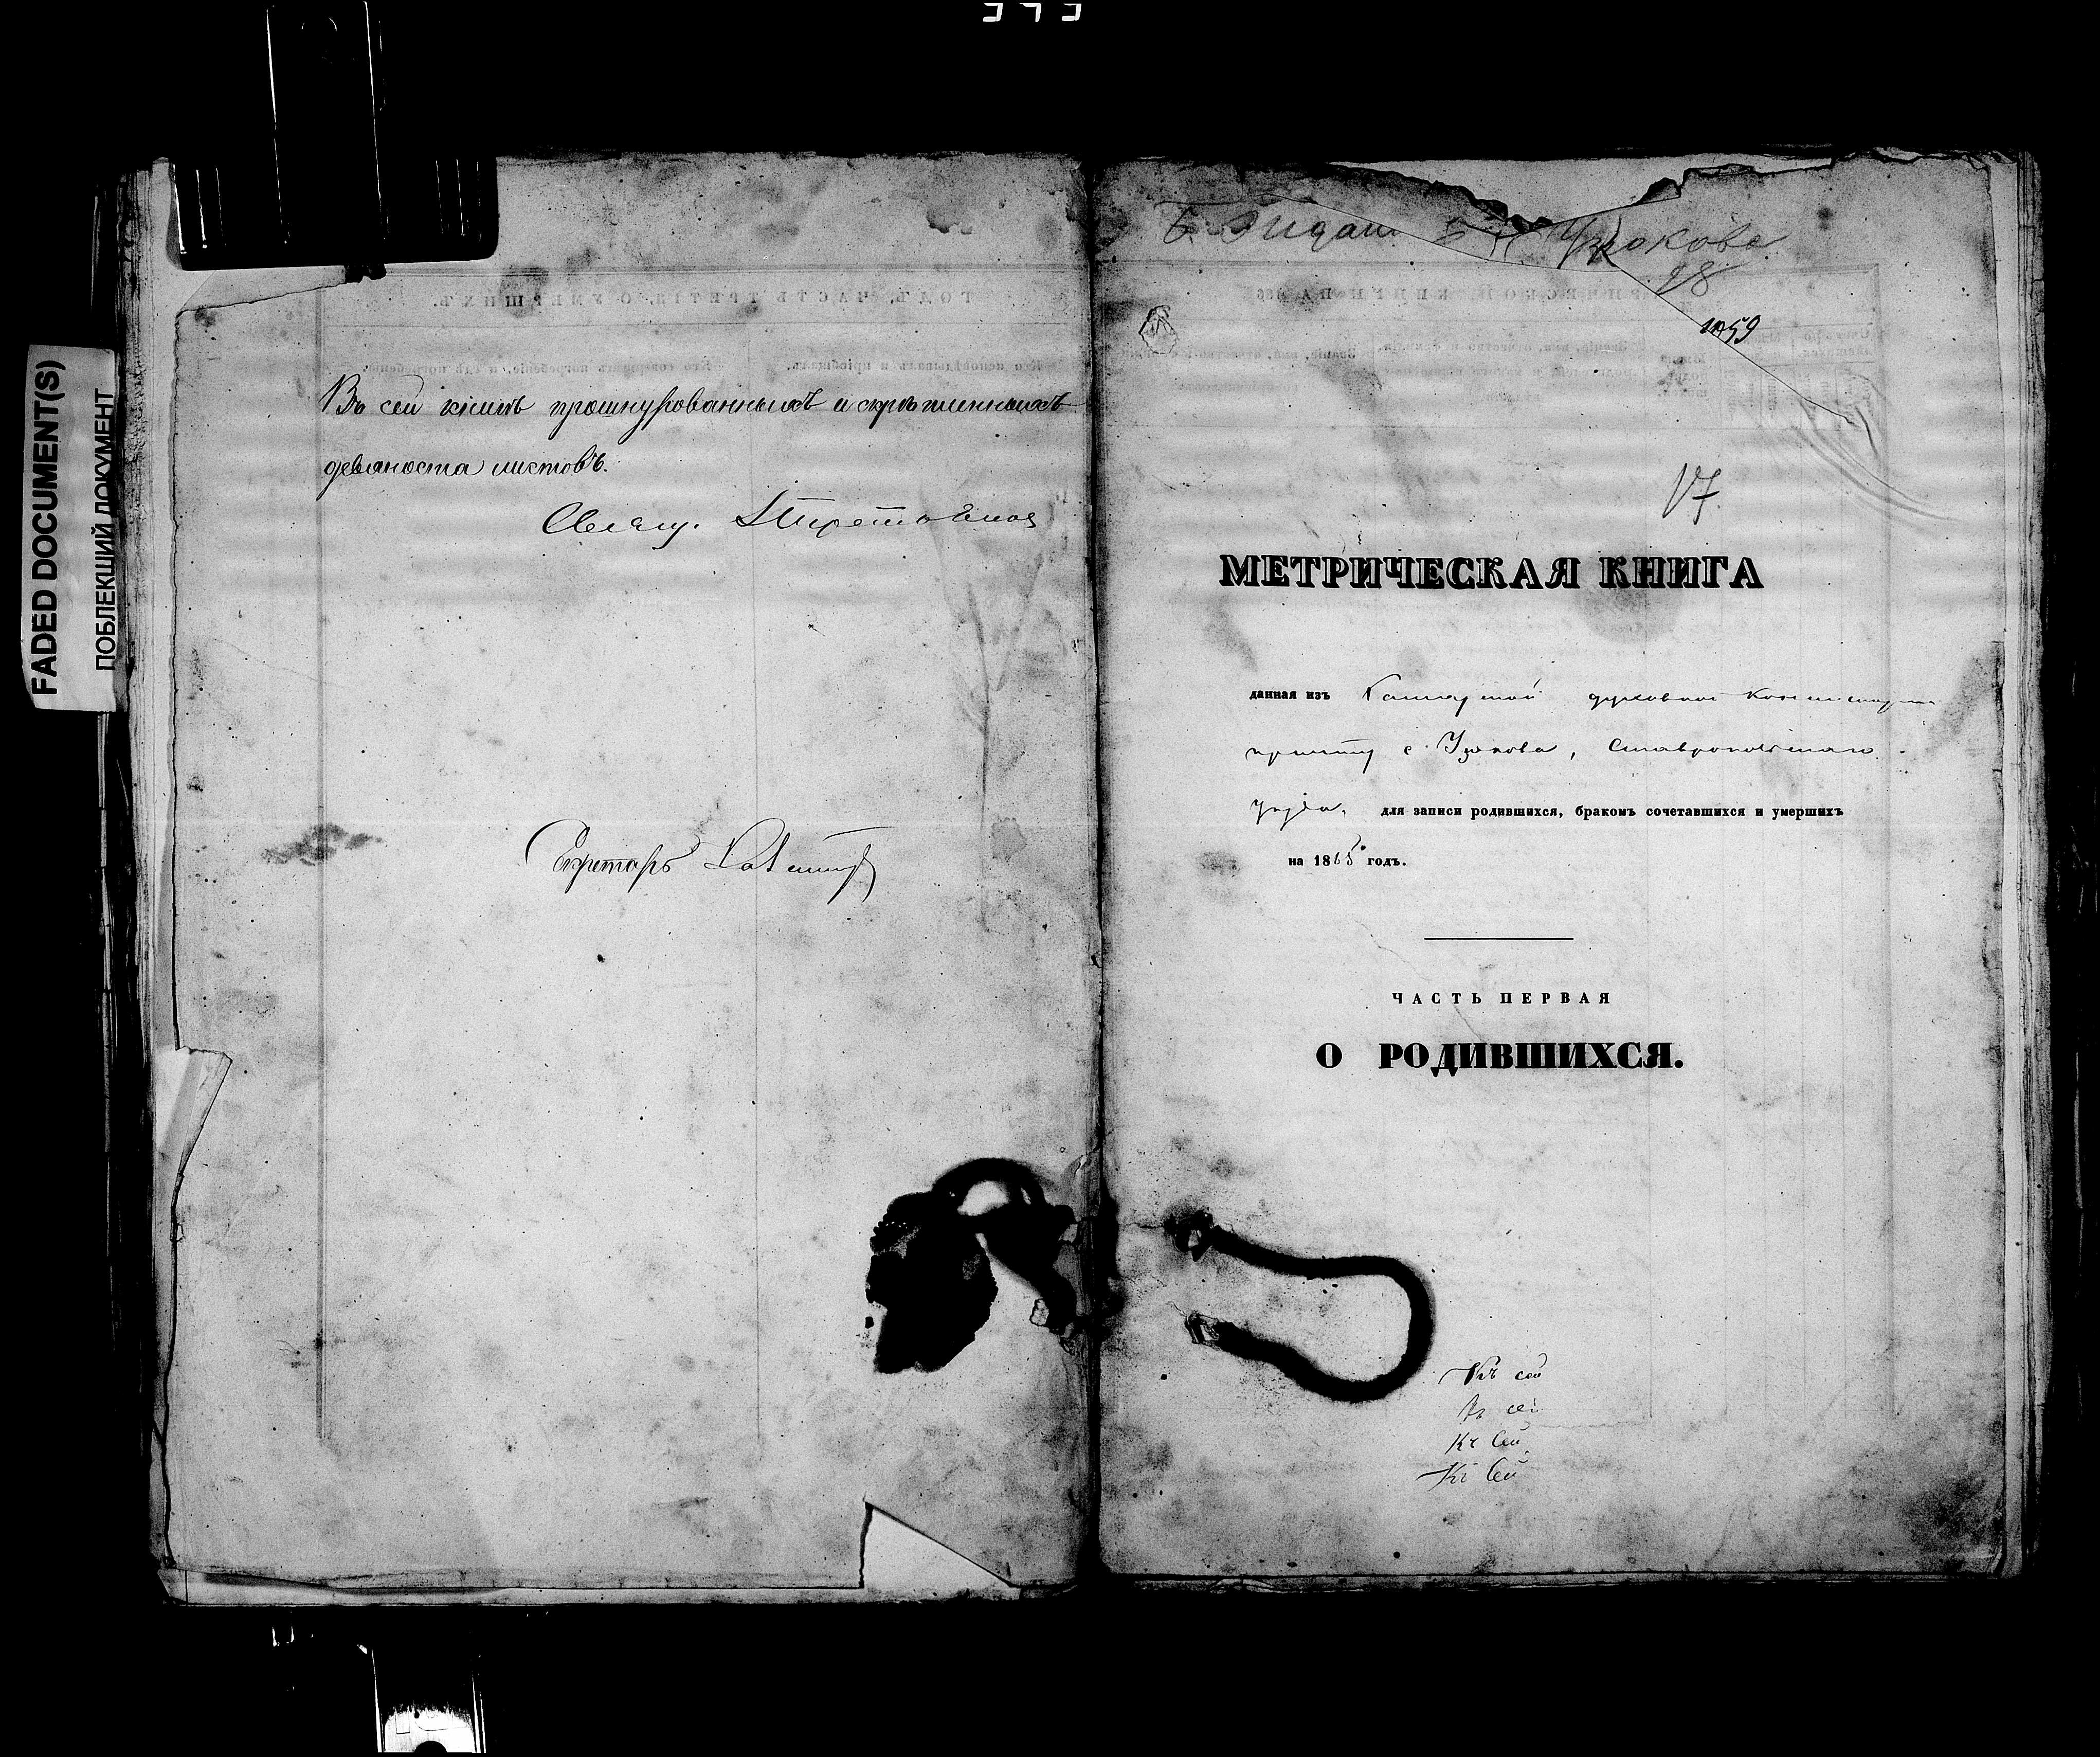 FADED DOCUMENT(S)
ПОБЛЕКШИЙ ДОКУМЕНТ
Въ сей книгѣ прошнурованныхъ и скрѣпленныхъ
девяноста листовъ.
Секретарь
Узюкова
98
1059
17
МЕТРИЧЕСКАЯ КНИГА
данная изъ духовной Консисторіи
причту с. Узюкова, Ставропольскаго
уѣзда, для записи родившихся, бракомъ сочетавшихся и умершихъ
на 1865 годъ.
ЧАСТЬ ПЕРВАЯ
О РОДИВШИХСЯ.
Къ сей
Къ сей
Къ Сей
Къ Сей